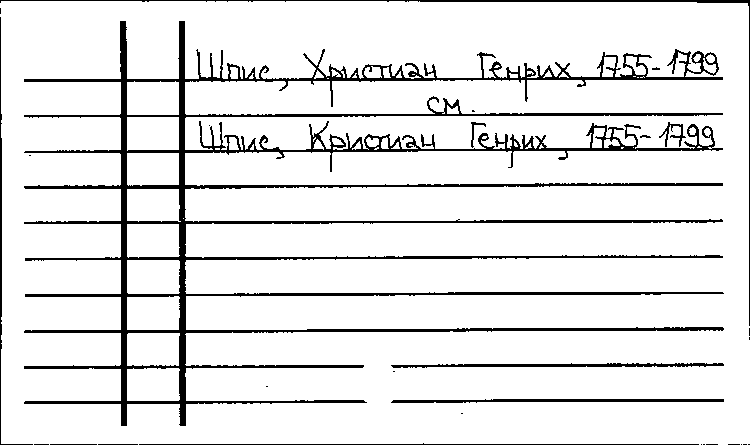 Шпис, Христиан Генрих, 1755-1799
см.
Шпис, Кристиан Генрих, 1755-1799